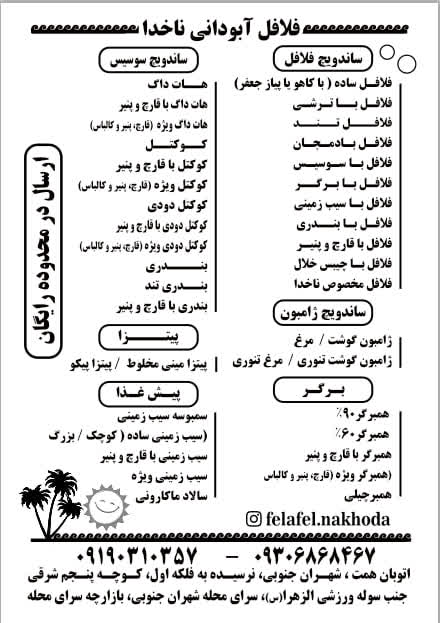 فلافل آبودانی ناخدا
ساندویچ فلافل
فلافل ساده ( با کاهو یا پیاز جعفر)
فلافل با ترشی
فلافل تند
فلافل بادمجان
فلافل با سوسیس
فلافل با برگر
فلافل با سیب زمینی
فلافل با بندری
فلافل با قارچ و پنیر
فلافل با چیبس خلال
فلافل مخصوص ناخدا
ساندویچ ژامبون
ژامبون گوشت / مرغ
ژامبون گوشت تنوری / مرغ تنوری
برگر
همبرگر ۹۰٪
همبرگر ۶۰٪
همبرگر با قارچ و پنیر
(همبرگر ویژه (قارچ، پنیر و کالباس
همبرچیلی
ساندویچ سوسیس
هات داگ
هات داگ با قارچ و پنیر
هات داگ ویژه (قارچ، پنیر و کالباس)
کوکتل
کوکتل با قارچ و پنیر
کوکتل ویژه (قارچ، پنیر و کالباس)
کوکتل دودی
کوکتل دودی با قارچ و پنیر
کوکتل دودی ویژه (قارچ، پنیر و کالباس)
بندری
بندری تند
بندری با قارچ و پنیر
پیتزا
پیتزا مینی مخلوط / پیتزا پیکو
پیش غذا
سمبوسه سیب زمینی
(سیب زمینی ساده ( کوچک / بزرگ
سیب زمینی با قارچ و پنیر
سیب زمینی ویژه
سالاد ماکارونی
ارسال در محدوده رایگان
felafel.nakhoda
۰۹۳۰۶۸۶۸۴۶۷ – ۰۹۱۹۰۳۱۰۳۵۷
اتوبان همت ، شهران جنوبی، نرسیده به فلکه اول، کوچه پنجم شرقی
جنب سوله ورزشی الزهرا(س)، سرای محله شهران جنوبی، بازارچه سرای محله